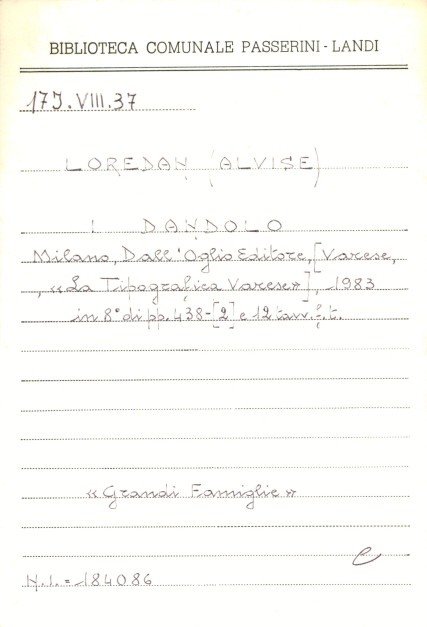 BIBLIOTECA COMUNALE PASSERINI - LANDI
17J.VIII.37
LOREDAN (ALVISE)
I DANDOLO
Milano, Dall'Oglio Editore, [Varese,
, «La Tipografica Varese»], 1983
in 8° di pp. 438-[2] e 12 tavv. f. t.
«Grandi Famiglie»
e
N.I. = 184086